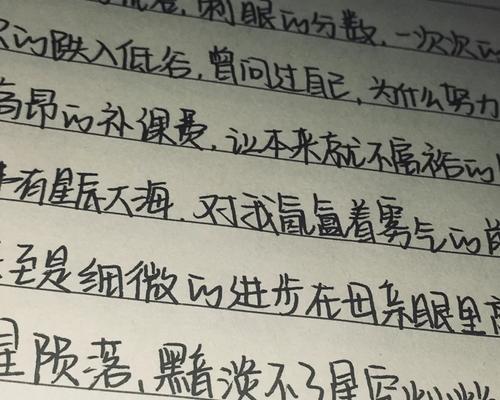 刺眼的分数,一次次的
的跌入低谷,曾问过自己,为什么努力
高昂的补课费,让本来就不富裕的
有星辰大海.对我氤氲着雾气的
至是细微的进步在母亲眼里
星陨落、黯淡不了星